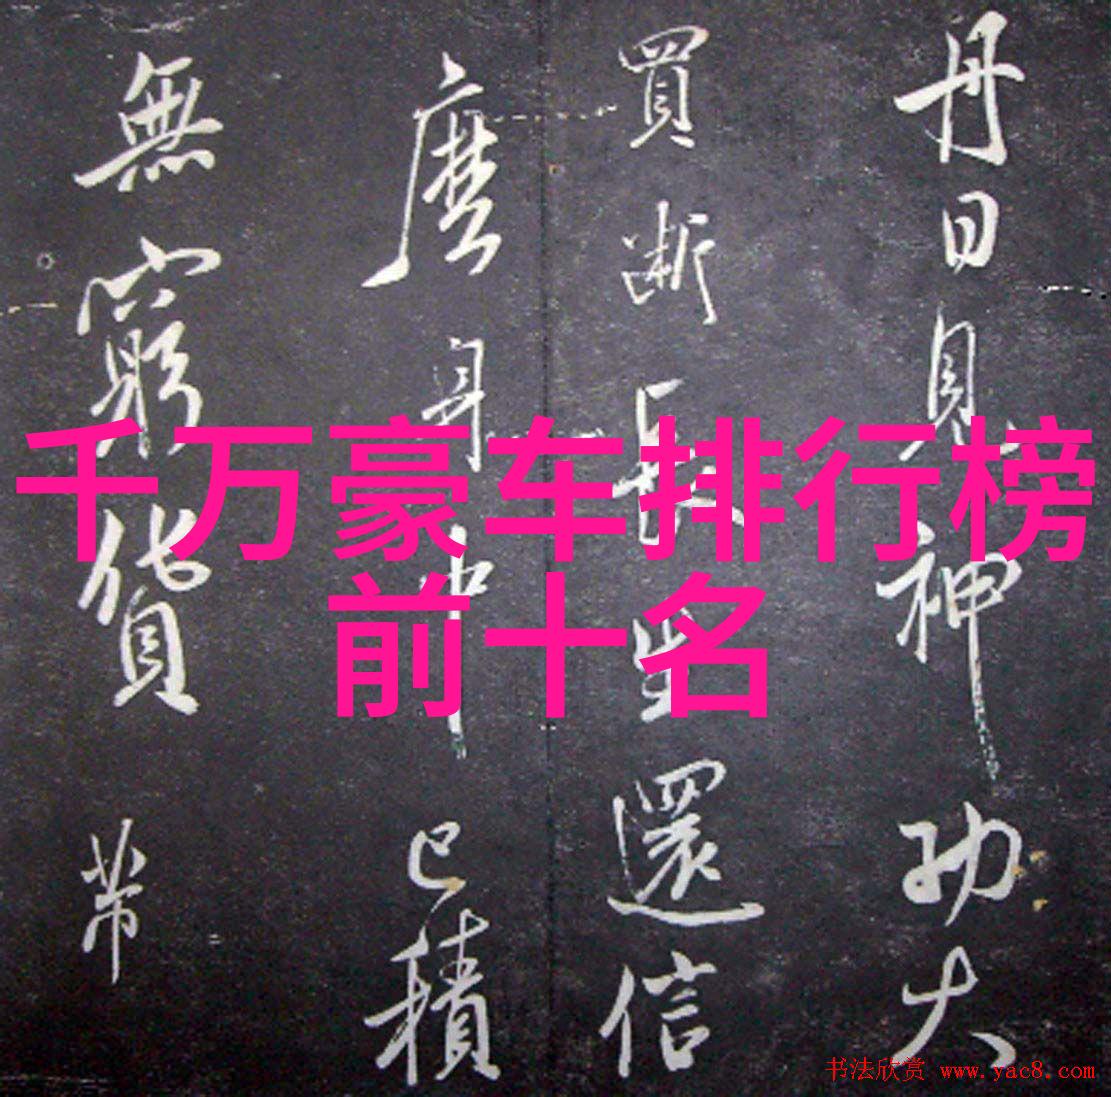 丹日見神功大
買斷長生還信
麼身中已積
無窮貨
千万豪车排行榜
前十名
书法欣赏 www.yac8.com